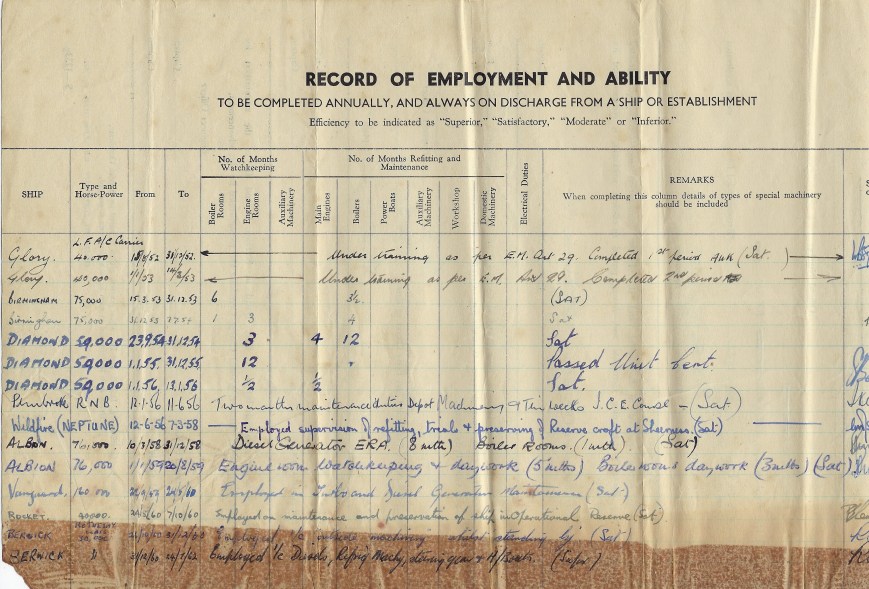 RECORD OF EMPLOYMENT AND ABILITY
TO BE COMPLETED ANNUALLY, AND ALWAYS ON DISCHARGE FROM A SHIP OR ESTABLISHMENT
Efficiency to be indicated as "Superior," "Satisfactory," "Moderate" or "Inferior."
No. of Months Watchkeeping
No. of Months Refitting and Maintenance
REMARKS
When completing this column details of types of special machinery should be included
SHIP Type and Horse-Power From To Boiler Rooms Engine Rooms Auxiliary Machinery Main Engines Boilers Power Boats Auxiliary Machinery Workshop Domestic Machinery Electrical Duties
L.F. A/C Carrier
Glory. 40,000. 31/12/52. Under training as per E.M. Art 29. Completed 1st period (Sat)
Glory. 40,000 1/1/53 Under training as per E.M. Art 29. Completed 2nd period
BIRMINGHAM 75,000 15.3.53 31.12.53 6 3½ (SAT)
Birmingham 75,000 31.12.53 1 3 4 Sat
DIAMOND 54,000 23.9.54 31.12.54 3 4 12 Sat
DIAMOND 54,000 1.1.55. 31.12.55 12 Passed Unit Cert.
DIAMOND 54,000 1.1.56. 13.1.56 ½ ½ Sat.
Pembroke R.N.B. 12-1-56 11-6-56 Two months maintenance duties Depot Machinery & Ten weeks I.C.E. Course - (Sat)
Wildfire (NEPTUNE) 12-6-56 7-3-58 Employed supervision of refitting, trials & preserving of Reserve craft at Sheerness. (Sat)
ALBION. 10/3/58 31/12/58 Diesel Generator ERA. (8 mth) Boiler Rooms. (1 mth) (Sat)
ALBION 76,000 1/1/59 20/8/59 Engine room Watchkeeping & daywork (5 mths) Boiler room & daywork (3 mths) (Sat)
Vanguard. Employed in Turbo and Diesel Generator Maintenance (Sat)
ROCKET. 40,000. 7/10/60 Employed on maintenance and preservation of ship in Operational Reserve. (Sat).
BERWICK 30,000 31/12/60 Employed i/c outside machinery whilst standing by (Sat)
BERWICK 31/12/60 Employed i/c Diesels, Refrig Machy, steering gear & M/Boats. (Super)